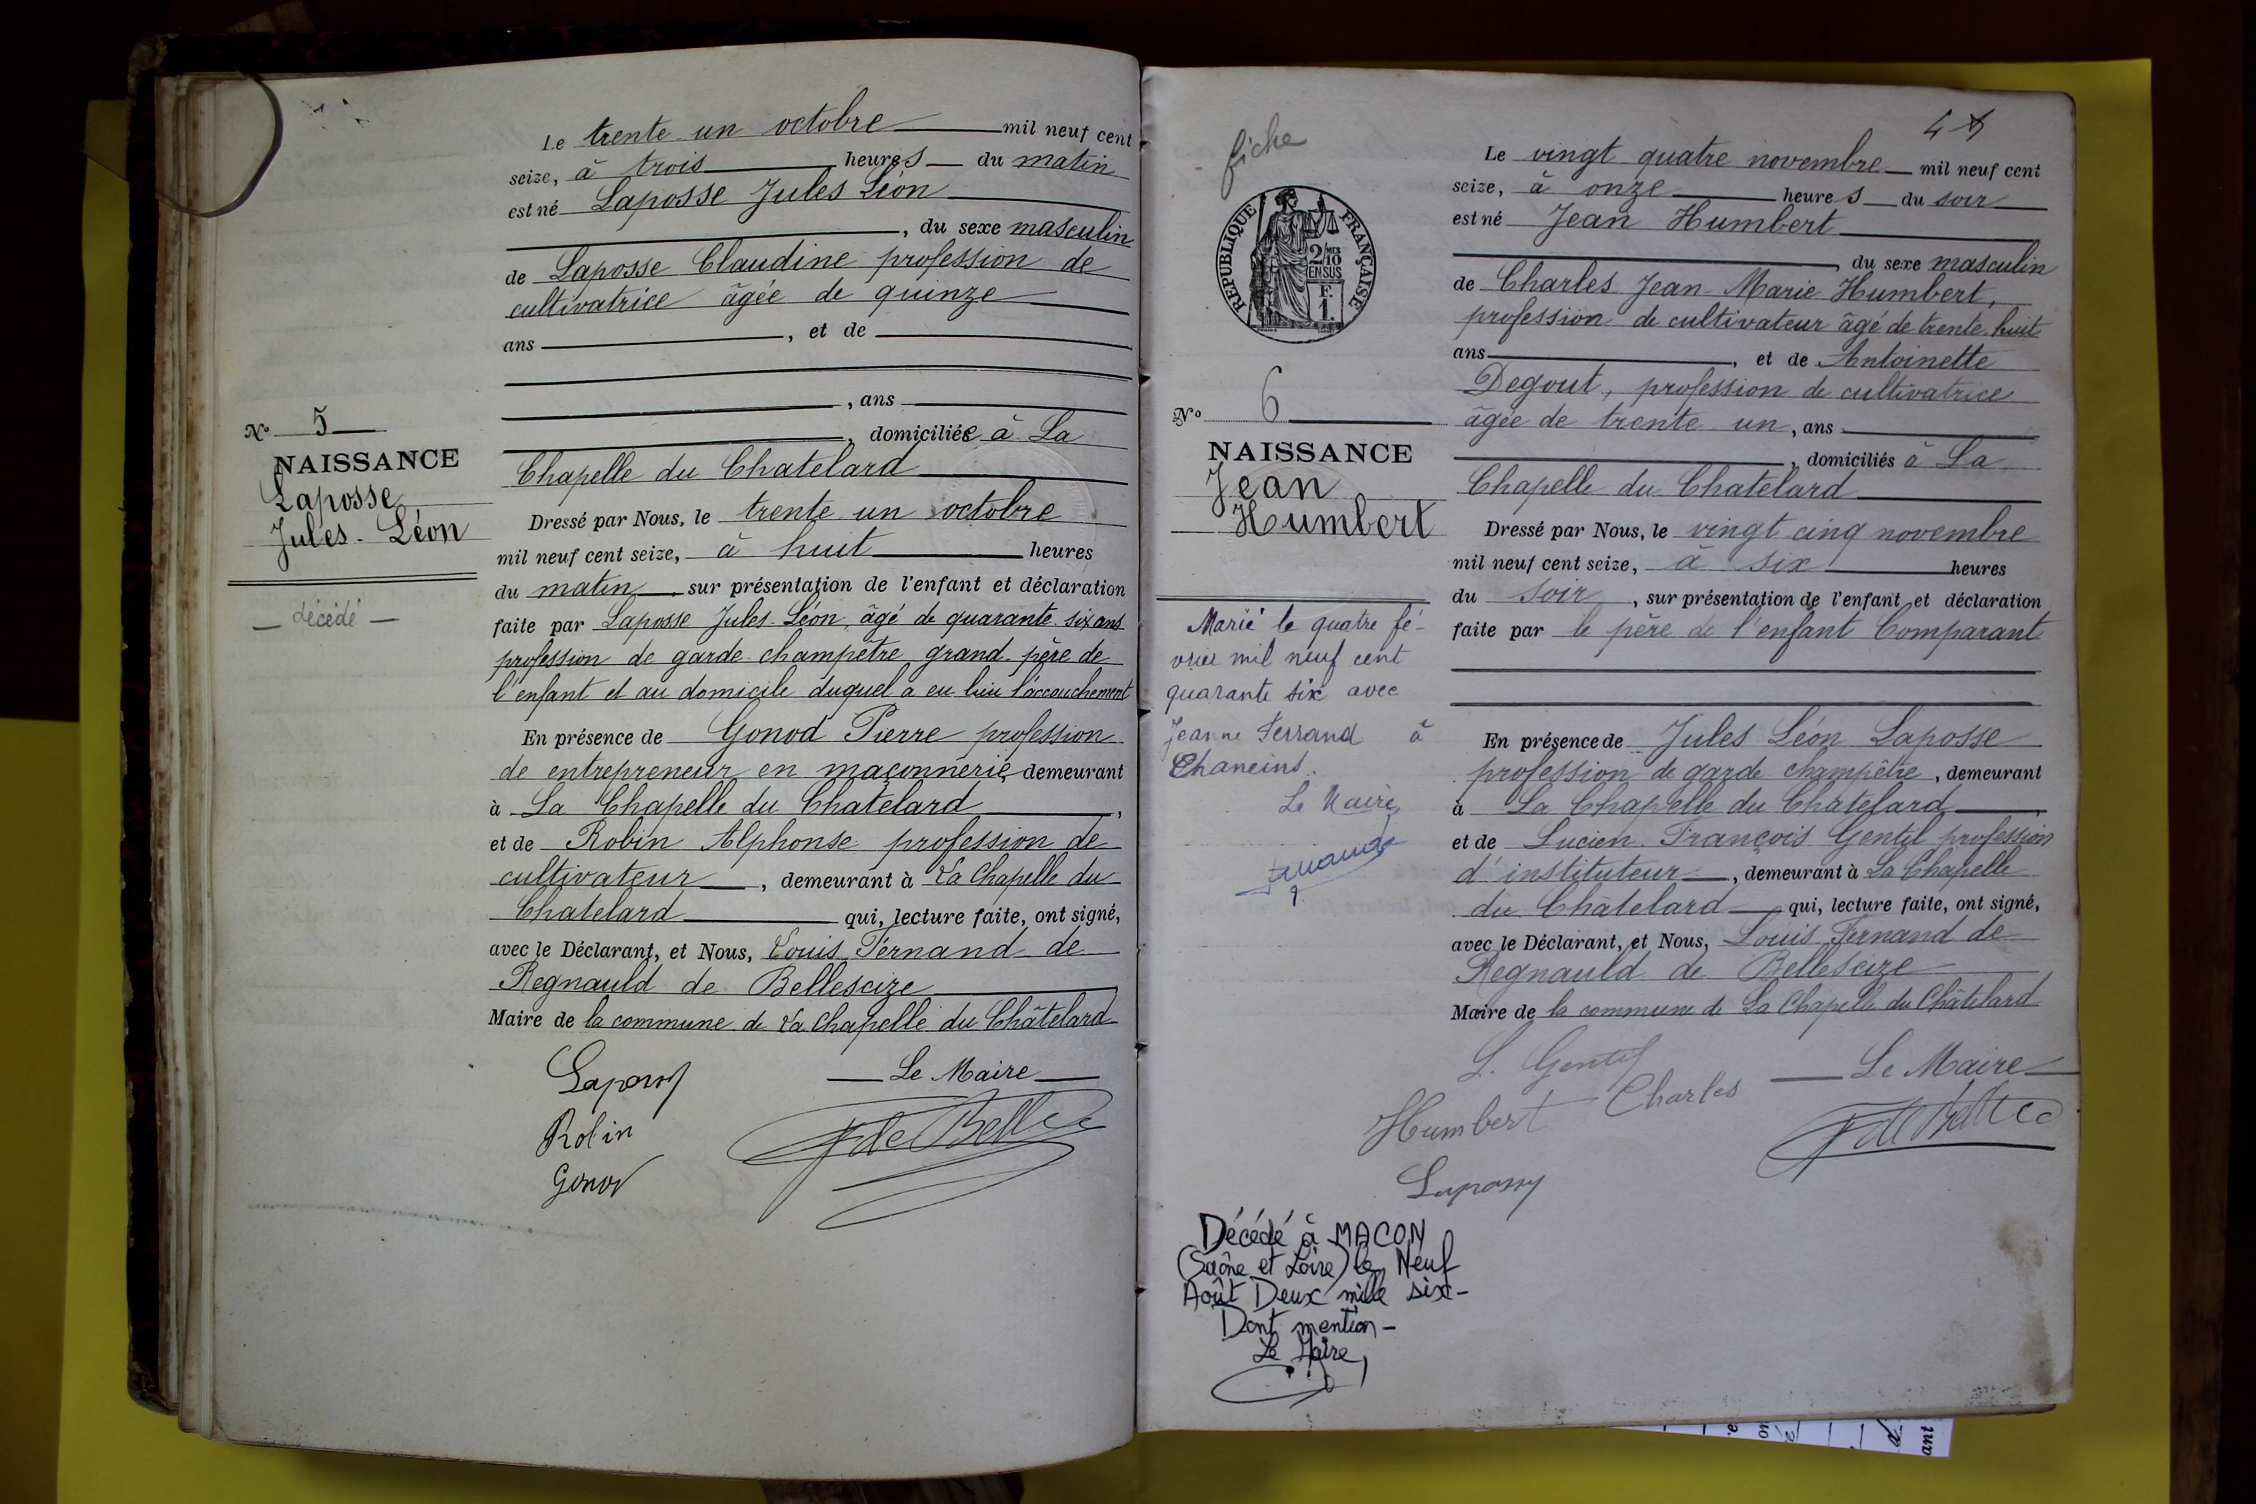 Le trente un octobre mil neuf cent
seize, à trois heures du matin
est né Laposse Jules Léon
, du sexe masculin
de Laposse Claudine profession de
cultivatrice âgée de quinze
ans , et de
, ans
, domiciliée à La
Chapelle du Chatelard
Dressé par Nous, le trente un octobre
mil neuf cent seize, à huit heures
du matin, sur présentation de l'enfant et déclaration
faite par Laposse Jules Léon, âgé de quarante six ans
profession de garde champêtre grand père de
l'enfant et au domicile duquel a eu lieu l'accouchement
En présence de Gonod Pierre profession
de entrepreneur en maçonnerie, demeurant
à La Chapelle du Chatelard ,
et de Robin Alphonse profession de
cultivateur , demeurant à La Chapelle du
Chatelard qui, lecture faite, ont signé,
avec le Déclarant, et Nous, Louis Fernand de
Regnauld de Bellescize
Maire de la commune de La Chapelle du Châtelard
Le Maire
Robin
No 5
NAISSANCE
Laposse
Jules-Léon
décédé
fiche
REPUBLIQUE FRANÇAISE
2/10 EN SUS
F. 1.
No 6
NAISSANCE
Jean
Humbert
Marié le quatre fé-
vrier mil neuf cent
quarante six avec
Jeanne Ferrand à
Chaneins.
Le Maire
Le vingt quatre novembre mil neuf cent
seize, à onze heures du soir
est né Jean Humbert
, du sexe masculin
de Charles Jean-Marie Humbert,
profession de cultivateur âgé de trente huit
ans , et de Antoinette
Degout, profession de cultivatrice
âgée de trente un, ans
, domiciliés à La
Chapelle du Chatelard
Dressé par Nous, le vingt cinq novembre
mil neuf cent seize, à six heures
du soir , sur présentation de l'enfant et déclaration
faite par le père de l'enfant Comparant
En présence de Jules Léon Laposse
profession de garde champêtre, demeurant
à La Chapelle du Châtelard ,
et de Lucien François Gentil profession
d'instituteur , demeurant à La Chapelle
du Châtelard qui, lecture faite, ont signé,
avec le Déclarant, et Nous, Louis Fernand de
Regnauld de Bellescize
Maire de la commune de La Chapelle du Châtelard
L. Gentil
Le Maire
Humbert Charles
Décédé à MACON
(Saône et Loire) le Neuf
Août Deux mille six-
Dont mention-
Le Maire,